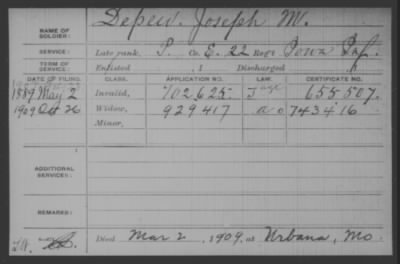 NAME OF SOLDIER: Depew. Joseph M.
SERVICE: Late rank, P. Co. E. 22 Reg't Iowa Inf.
TERM OF SERVICE: Enlisted , 1 Discharged
DATE OF FILING. CLASS. APPLICATION NO. LAW. CERTIFICATE NO.
1889 May 2 Invalid, 702625. 655507.
1909 Oct 26 Widow, 929417 a o 743416
Minor,
ADDITIONAL SERVICES:
REMARKS:
Died Mar 2, 1909, at Urbana, Mo.